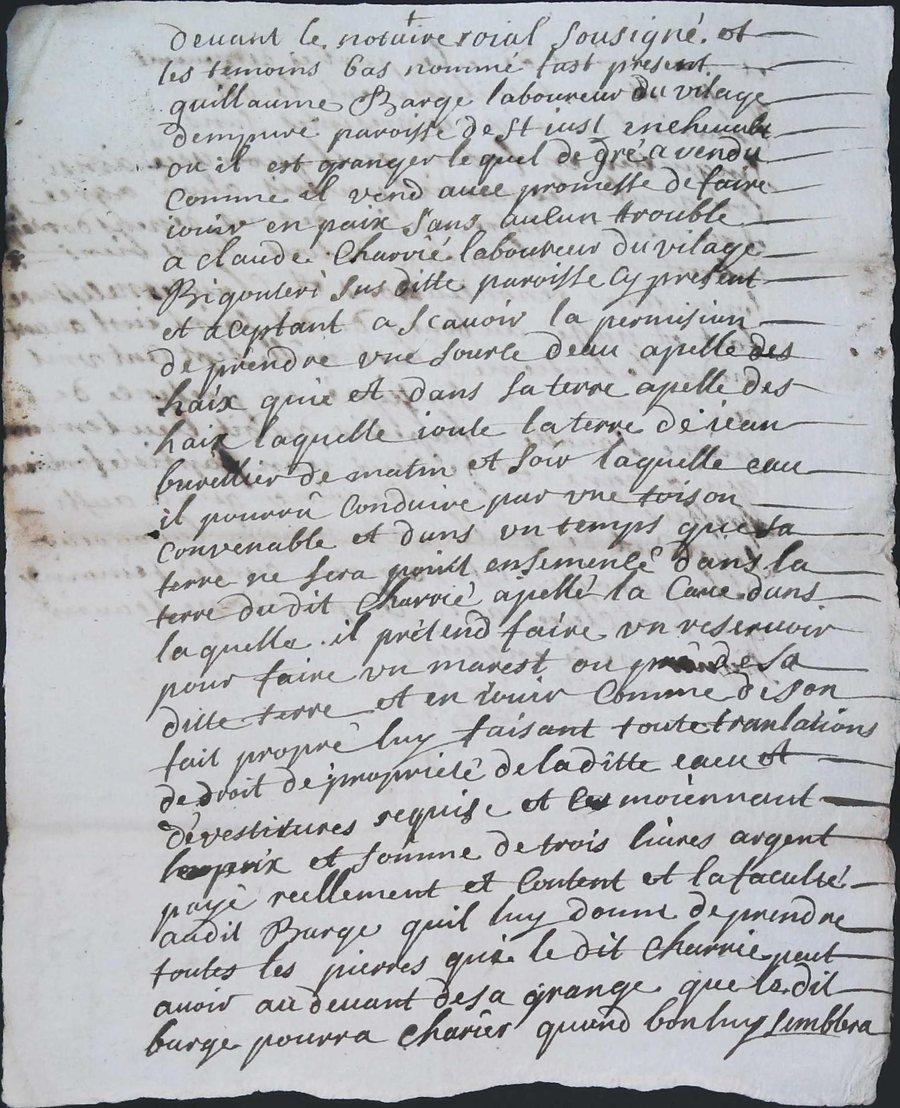 devant le notaire roial sousigné et
les temoins bas nommé fust present
guillaume Barge laboureur du vilage
paroisse de St iust en chevalet
ou il est granger lequel de gré a vendu
comme il vend avec promesse de faire
iouir en paix sans aucun trouble
a claude Charrié laboureur du vilage
Bigonteri sus ditte paroisse cy present
et aceptant a scavoir la permision
de prendre vne source deau apellé des
haix quie et dans sa terre apellé des
haix laquelle ioute la terre de iean
burellier de matin et soir laquelle eau
il pourra conduire par vne
convenable et dans vn temps que sa
terre ne sera point ensemencé dans la
terre dudit Charrié apellé la Cave dans
laquelle il prétend faire vn reservoir
pour faire vn marest ou de sa
ditte terre et en iouir comme de son
fait propre luy faisant toute tranlations
de droit de propriété de la ditte eau et
dévestitures requise et moiennant
le prix et somme de trois livres argent
payé reellement et content et la faculté
audit Barge quil luy donne de prendre
toutes les pierres quie le dit Charrie peut
avoir au devant de sa grange que le dit
barge pourra charier quand bon luy semblera